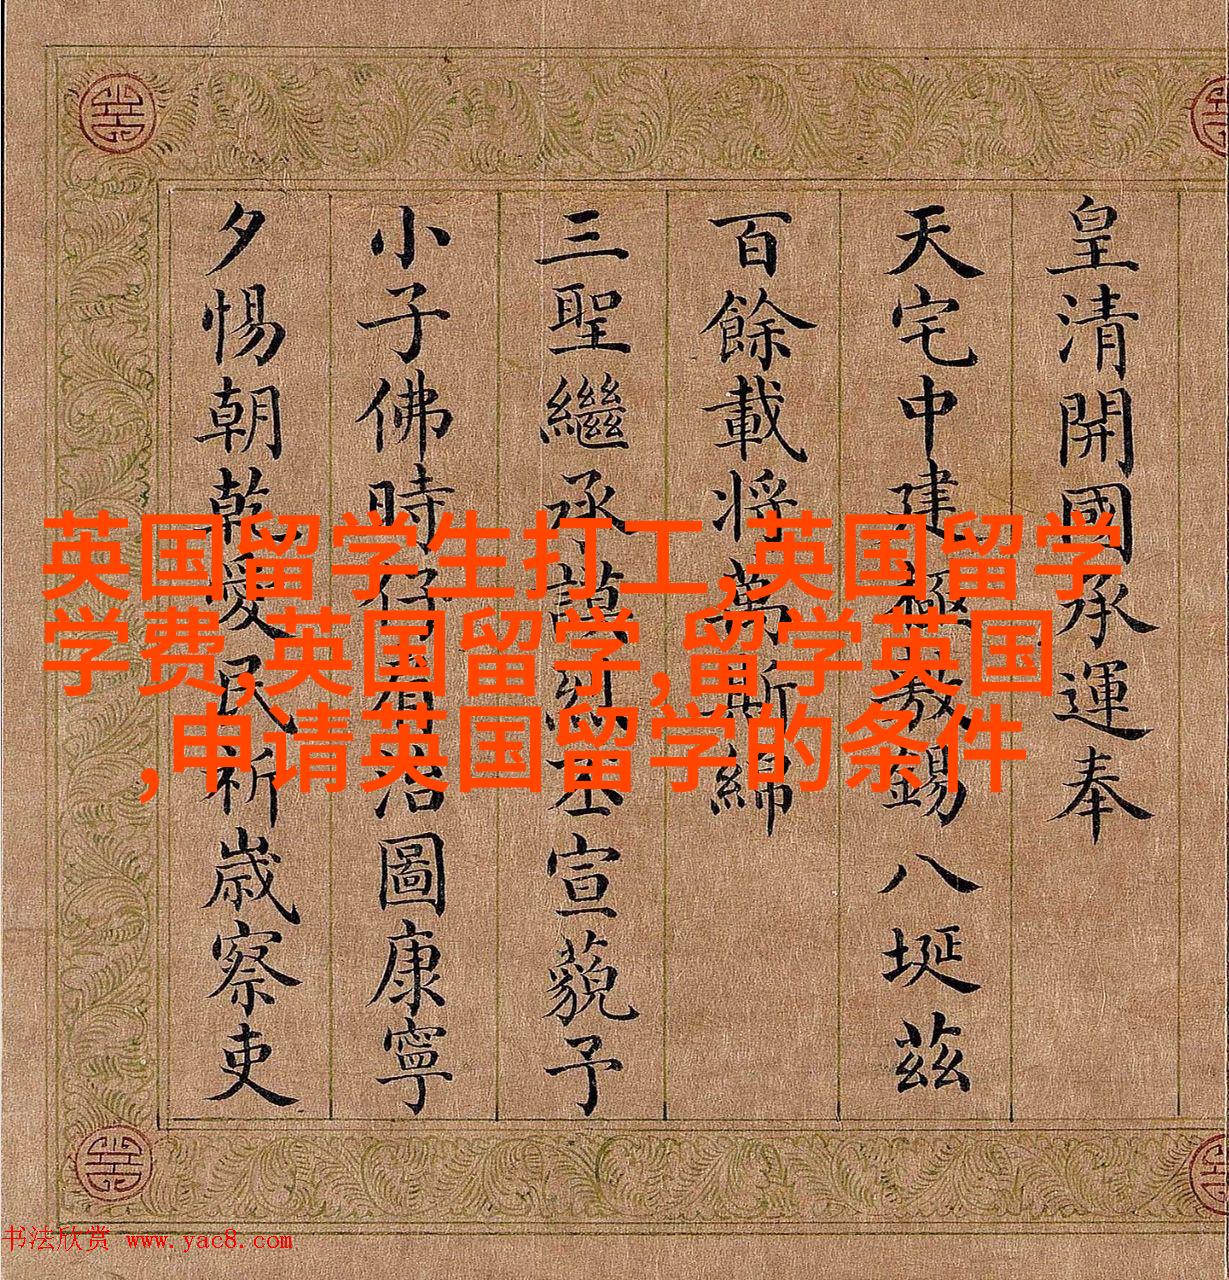 皇清開國承運奉
天宅中建極敷錫八埏茲
百餘載將萬斯綿
三聖繼承謨烈丕宣藐予
小子佛時仔肩治圖康寧
夕惕朝乾愛民祈歳察吏
英国留学生打工,英国留学
学费,英国留学,留学英国
,申请英国留学的条件
书法欣赏 www.yac8.com